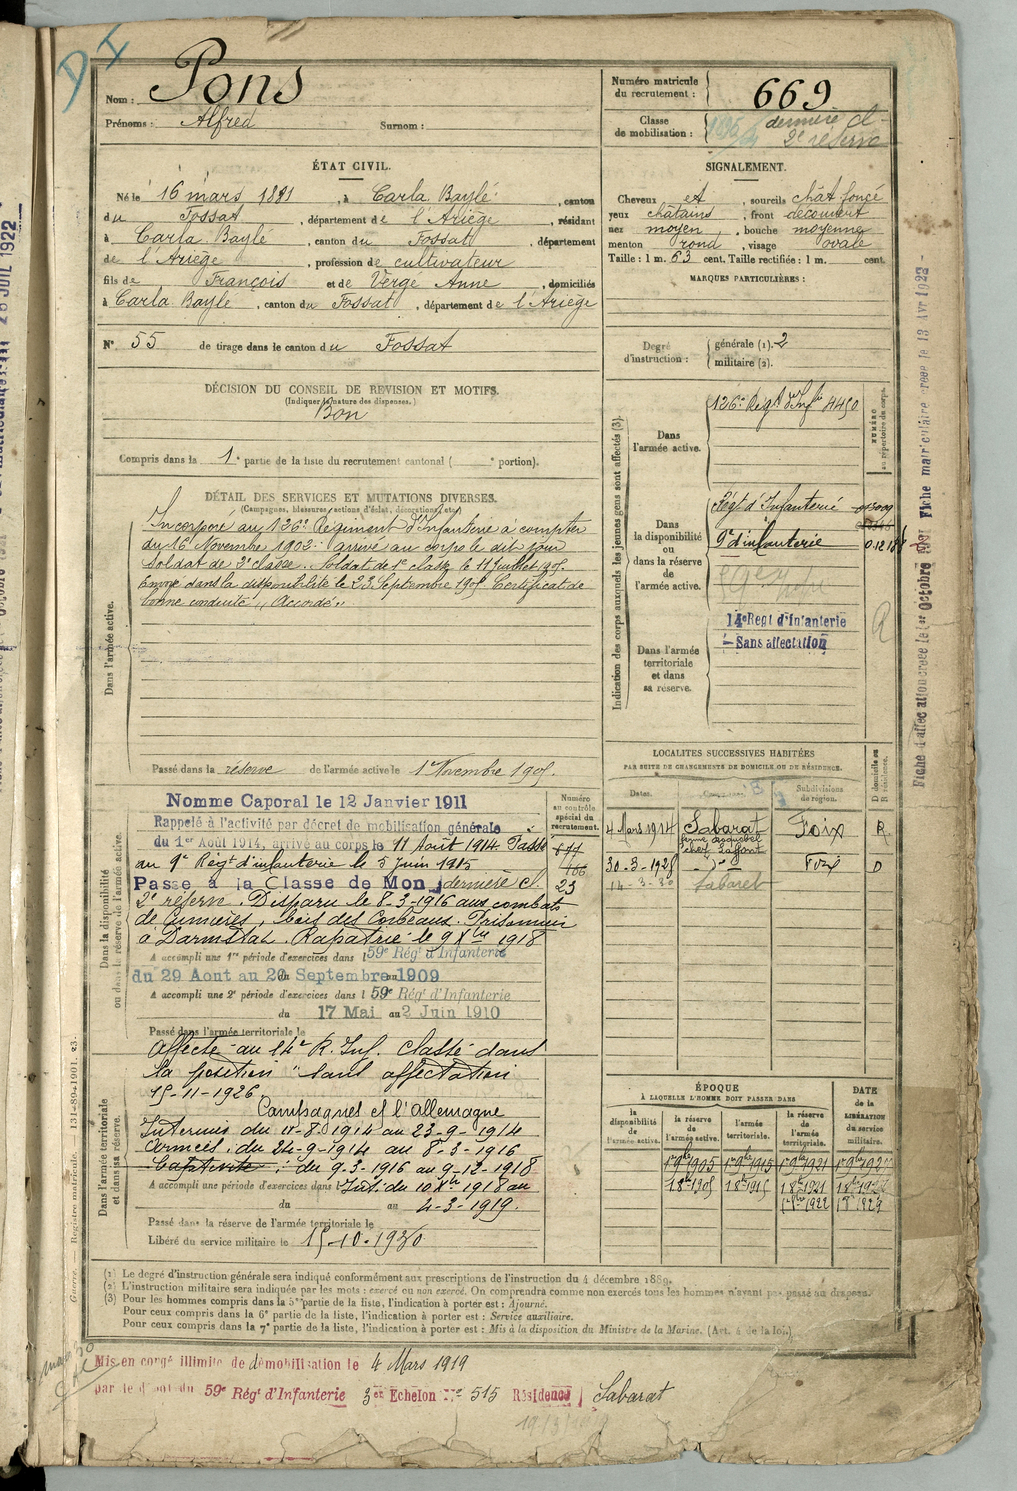 D I
Nom : Pons
Prénoms : Alfred Surnom :
Numéro matricule du recrutement : 669
Classe de mobilisation : dernière cl. 2e réserve
ÉTAT CIVIL.
Né le 16 mars 1881, à Carla Baylé, canton
du Fossat, département de l'Ariège, résidant
à Carla Baylé, canton du Fossat, département
de l'Ariège, profession de cultivateur
fils de François et de Verge Anne, domiciliés
à Carla Baylé, canton du Fossat, département de l'Ariège
N° 55 de tirage dans le canton du Fossat
SIGNALEMENT.
Cheveux et, sourcils chât foncé
yeux châtains, front découvert
nez moyen, bouche moyenne
menton rond, visage ovale
Taille : 1 m. 63 cent. Taille rectifiée : 1 m. cent.
MARQUES PARTICULIÈRES :
Degré d'instruction : générale (1). 2
militaire (2).
DÉCISION DU CONSEIL DE REVISION ET MOTIFS.
(Indiquer la nature des dispenses.)
Bon
Compris dans la 1e partie de la liste du recrutement cantonal ( e portion).
DÉTAIL DES SERVICES ET MUTATIONS DIVERSES.
(Campagnes, blessures, actions d'éclat, décorations, etc.)
Dans l'armée active.
Incorporé au 126e Régiment d'Infanterie à compter
du 16 Novembre 1902. arrivé au corps le dit jour
soldat de 2e classe. Soldat de 1e classe le 11 juillet 1905.
Envoyé dans la disponibilité le 23 Septembre 1905 Certificat de
bonne conduite "Accordé"
Passé dans la réserve de l'armée active le 1 Novembre 1905.
Indication des corps auxquels les jeunes gens sont affectés (3).
NUMÉRO au répertoire du corps.
Dans l'armée active.
126e Régt d'Infie 4450
Dans la disponibilité ou dans la réserve de l'armée active.
Régt d'Infanterie
9e d'infanterie
59e
Dans l'armée territoriale et dans sa réserve.
14e Regt d'Infanterie
Sans affectation
R
Dans la disponibilité ou dans la réserve de l'armée active.
Numéro au contrôle spécial du recrutement.
Nomme Caporal le 12 Janvier 1911
Rappelé à l'activité par décret de mobilisation générale
du 1er Août 1914, arrivé au corps le 11 Août 1914 Passé
au 9e Régt d'infanterie le 5 juin 1915
Passe à la Classe de Mon dernière cl.
23
2e réserve. Disparu le 8-3-1916 aux combats
de Cumières, bois des Corbeaux. Prisonnier
à Darmstat. Rapatrié le 9 Xbre 1918
A accompli une 1re période d'exercices dans l 59e Régt d'Infanterie
du 29 Aout au 20 Septembre 1909
A accompli une 2e période d'exercices dans l 59e Régt d'Infanterie
du 17 Mai au 2 Juin 1910
Passé dans l'armée territoriale le
Affecté au 14e R. Inf. Classé dans
la position "sans affectation
15-11-1926
Dans l'armée territoriale et dans sa réserve.
Campagnes ct l'allemagne
Interieur du 11-8-1914 au 23-9-1914
armées, du 24-9-1914 au 8-3-1916
Captivité : du 9-3-1916 au 9-12-1918
A accompli une période d'exercices dans l Int. du 10 Xbre 1918 au
du au 4-3-1919.
Passé dans la réserve de l'armée territoriale le
Libéré du service militaire le 15-10-1930
LOCALITES SUCCESSIVES HABITÉES
PAR SUITE DE CHANGEMENTS DE DOMICILE OU DE RÉSIDENCE.
Dates. Communes. Subdivisions de région. D domicile ou R résidence.
4 Mars 1914 Sabarat Foix R
chez Laffont
30-3-1928 -"- Foix D
14-3-30 Sabarat
ÉPOQUE
À LAQUELLE L'HOMME DOIT PASSER DANS
DATE de la LIBÉRATION du service militaire.
la disponibilité de l'armée active.
la réserve de l'armée active.
l'armée territoriale.
la réserve de l'armée territoriale.
1er 9bre 1905 1er 9bre 1915 1er 9bre 1921 1er 9bre 1927
(1) Le degré d'instruction générale sera indiqué conformément aux prescriptions de l'instruction du 4 décembre 1889.
(2) L'instruction militaire sera indiquée par les mots : exercé ou non exercé. On comprendra comme non exercés tous les hommes n'ayant pas passé au drapeau.
(3) Pour les hommes compris dans la 5e partie de la liste, l'indication à porter est : Ajourné.
Pour ceux compris dans la 6e partie de la liste, l'indication à porter est : Service auxiliaire.
Pour ceux compris dans la 7e partie de la liste, l'indication à porter est : Mis à la disposition du Ministre de la Marine. (Art. 4 de la loi.)
Mis en congé illimité de démobilisation le 4 Mars 1919
par le dépôt du 59e Régt d'Infanterie 3er Echelon No 515 Résidence Sabarat
Guerre. — Registre matricule. 131-89-1901. 23.
Fiche matriculaire créée le 13 Avr 1923
Fiche d'affectation créée le 1er Octobre 1931
25 JUIL 1922